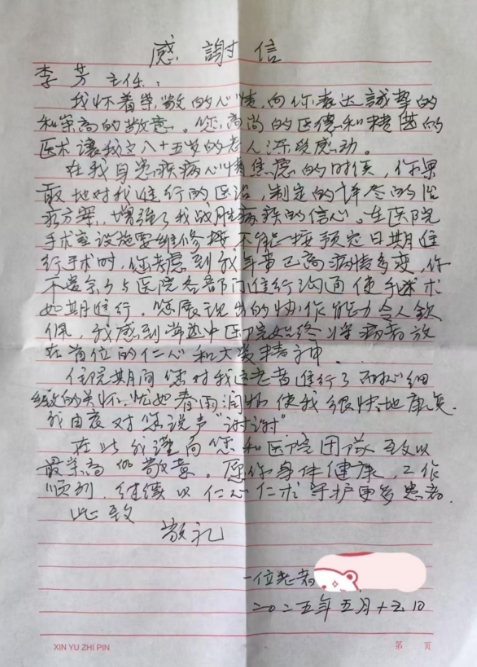 感謝信
李芳主任：
我怀着崇敬的心情，向你表达誠挚的
和崇高的敬意。您高尚的医德和精湛的
医术讓我这八十五岁的老人深段感动。
在我身患疾病心情焦虑的时候，你果
敢地对我進行的医治，制定的详尽的治
疗方案，增强了我战胜病疾的信心。在医院
手術室设施要维修 不能按预定日期進
行手术时，您考虑到我年事已高病情多变，你
不辞辛 与医院各部门進行沟通使手术
如期進行。您展现出的协作能力令人欽
佩，我感到 中医院始终将病者放
在首位的仁心和大爱精神。
住院期间您对我這老者進行了耐心细
緻的关怀，犹如春雨润物使我很快地康复
我由衷对您说声“谢谢”
在此我謹向您和医院团队致以
最崇高的敬意。愿你身体健康，工作
顺利，继续以仁心仁术守护更多患者.
此致
敬礼
一位老者
二〇二五年五月十五日
XIN YU ZHI PIN
第 页